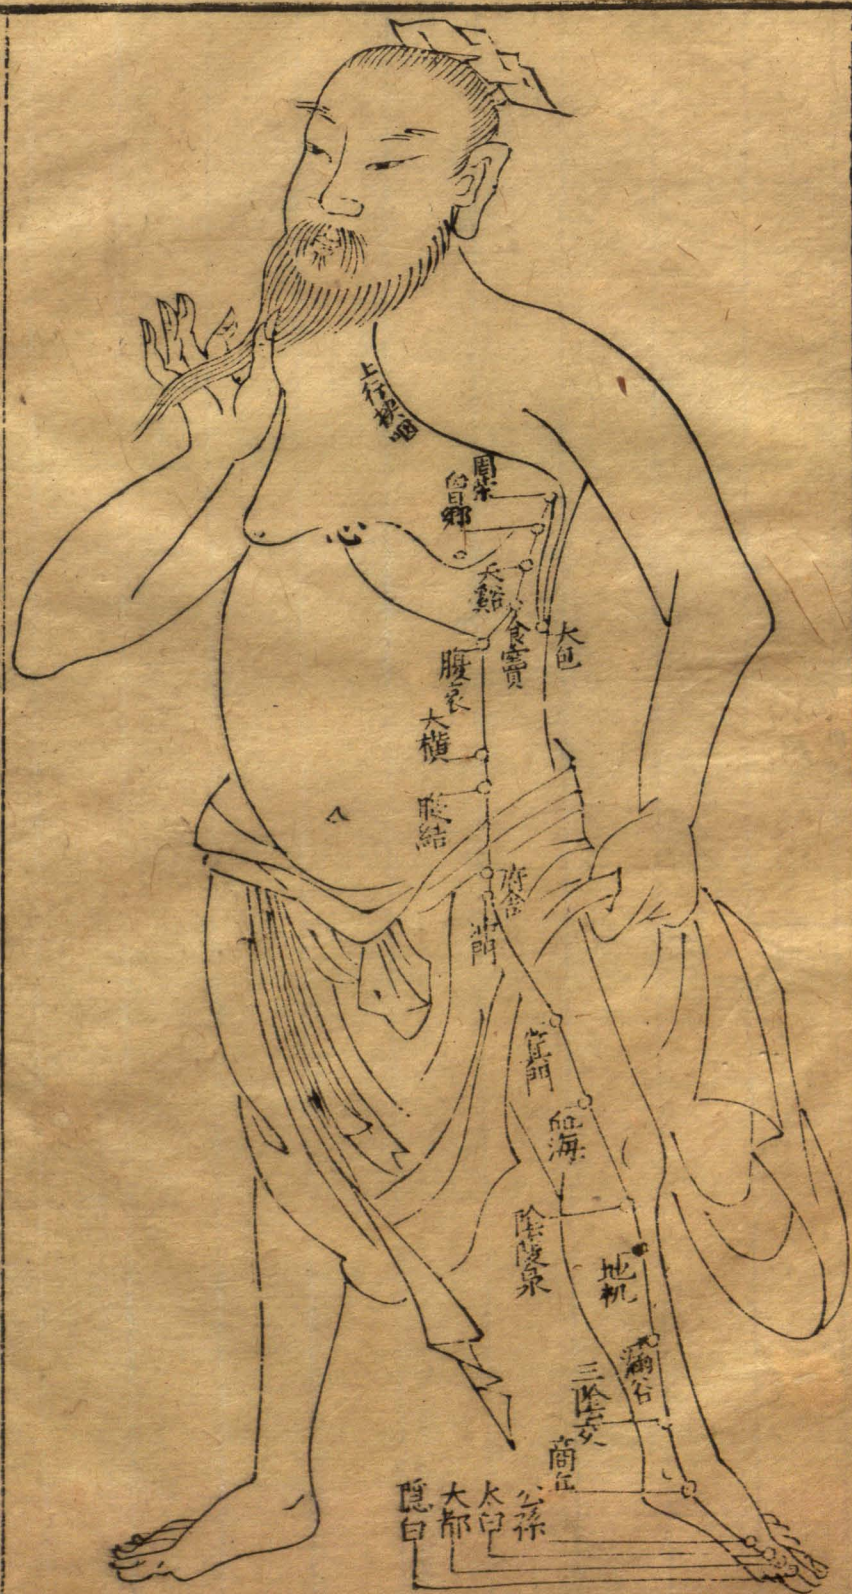 上行挾咽
周榮
胷鄉
天谿
食竇
大包
腹哀
大橫
腹結
府舍
門
箕門
血海
陰陵泉
地机
漏谷
三陰交
商丘
公孫
太白
大都
隱白